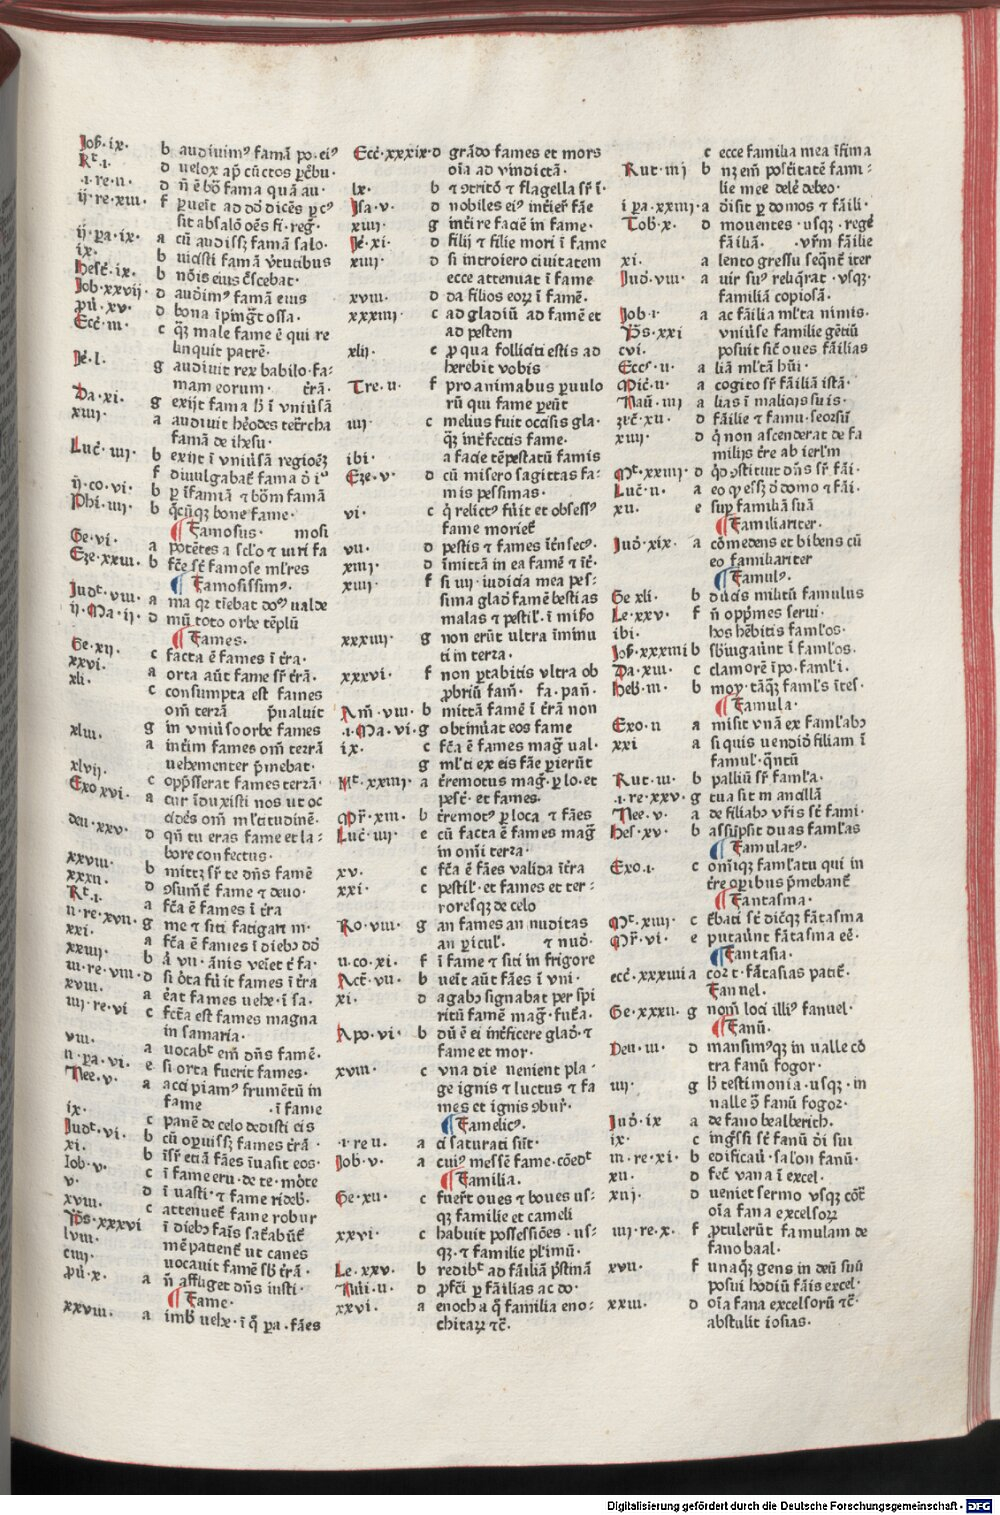 Job·ix· b audiuimꝰ famā po·eiꝰ
Rᵗ·i· d uelox ap̄ cūctos p̄c̄bu·
·i·re·ii· d n̄ ē bo᷒ fama quā au·
ij·re·xiii· f ꝑueīt ad dd̄ dicēs ꝑcꝰ
sit absalō oēs fi·reḡ·
ij·pa·ix· a cū audiss₃ famā salo·
ix· b uicisti famā v̄tutibus
Hest̄·ix· b nōis eius c̄scebat·
Job·xxvij· d audīmꝰ famā eius
ꝓu̅·xv· d bona īpīgt̄ ossa·
Ecc̄·iii· c qꝫ male fame ē qui re
linquit patrē·
Je̅·l· g audiuit rex babilo·fa-
mam eorum· t̄rā·
Da·xi· g exijt fama h̄ ī vniūsā
xiiij· a audiuit hēodes tetr̄cha
famā de ihesu·
Luc̄·iiij· b exijt ī vniūsā regiōeꝫ
f diuulgabat̄ fama d̄ iᵒ
ij·co·vi· b ꝑ īfamiā ⁊ bōm famā
Phi·iiij· b q̄cūqꝫ bone fame·
¶ Famosus· mosi
Ge·vi· a potētes a sclo ⁊ uiri fa
Eze·xxiii· b fc̄e sc̄ famose mlr̄es
¶ Famosissimꝰ·
Judᵗ·viii· a ma qꝛ tīebat doꝫ ualde
ij·Ma·ij· d mū toto orbe tēplū
¶ Fames·
Ge·xij· c facta ē fames ī t̄ra·
xxvi· a orta aūt fame sr̄ t̄rā·
xli· c consumpta est fames
om̄ terrā p̄ualuit
g in vniūso orbe fames
xliii· a int̄im fames om̄ terrā
uehementer p̄mebat·
xlvij· c opp̄sserat fames terrā·
Exo xvi· a cur īduxisti nos ut oc
cidēs om̄ ml̄titudinē·
deu·xxv· d qn̄ tu eras fame et la-
bore confectus·
xxviii· b mittꝫ sr̄ te dn̄s famē
xxxii· d ꝯsum̄t̄ fame ⁊ deuo·
Rᵗ·i· a fc̄a ē fames ī t̄ra
ii·re·xvii· g me ⁊ siti fatigati m·
xxi· a fc̄a ē fames ī diebꝫ dd̄
xxiiij· b ā vii·ānis veīet t̄ fa·
iii·re·viii· d si ōta fūit fames ī t̄ra
xviii· a ēat fames uehe·ī sa·
iiij·re·vi c fct̄a est fames magna
in samaria·
viii· a uocabᵗ em̄ dn̄s famē·
ii·pa·vi· e si orta fuerit fames·
Nee·v· a accipiamꝰ frumētū in
fame ·ī fame
ix· c panē de celo dedisti eis
Judᵗ·vi· b cū oꝑuiss₃ fames t̄rā·
xi· b īsr̄ etiā fāes īuasit eos·
Iob·v· c ī fame eru·de te·mōte
v· d ī uasti·⁊ fame rideb̄·
xviii· c attenuet̄ fame robur
Ps̄·xxxvi ī diebꝫ fāis sat̄abūt̄
lviii· mē patient̄ ut canes
ciiij· uocauit famē sb̄ t̄rā·
ꝓu̅·x· a n̄ affliget dn̄s iusti·
¶ Fame·
xxviii· a imb̄ uehe·ī q̄ ꝑa·fāes
Ecc̄·xxxix· d grādo fames et mors
oīa ad vindictā·
lx· b ⁊ ꝯtritō ⁊ flagella sr̄ ī·
Jsa·v· d nobiles eiꝰ int̄iet̄ fāe
xiiij· g int̄ire faciē in fame·
Je̅·xi· d filij ⁊ filie mori ī fame
xiiij· d si introiero ciuitatem
ecce attenuat ī fame
xviii· d da filios eoꝝ ī famē·
xxxiiij· c ad gladiū ad famē et
ad pestem
xlij· c ꝓ qua solliciti estis ad
herebit vobis
Tre·ii· f pro animabus ꝑuulo
rū qui fame ꝑeūt
iiij· c melius fuit occīsis gla·
q̄ꝫ int̄fectis fame·
ibi· a facie tēpestatū famis
Eze·v· d cū misero sagittas fa-
mis pessimas·
vi· c q̄ relictꝰ fūit et obsessꝰ
fame moriet̄
vii· d pestis ⁊ fames īt̄nsecꝰ·
xiiij· d īmittā in ea famē ⁊ īt̄·
xiiij· f si iiij·iudicia mea pes-
sima glad̄ famē bestias
malas ⁊ pestil̄·ī mīso
xxxiiij· g non erūt ultra īminu
ti in terra·
xxxvi· f non ꝑtabitis vltra ob
ꝓbriū fam̄· fa·pan̄·
Am̄·viii· b mittā famē ī t̄rā non
·i·Ma·vi· g obtinūat eos fame
ix· c fc̄a ē fames mag̅ ual·
g ml̄ti ex eis fāe ꝑierūt
Mᵗ·xxiiij· a t̄remotus mag̅·ꝑ lo·et
pest̄·et fames·
Mr̄·xiii· b t̄remotꝰ ꝑ loca ⁊ fāes
Luc̄·iiij· e cū facta ē fames mag̅
in om̄i terra·
xv· c fc̄a ē fāes valida īt̄ra
xxi· c pestil̄·et fames et ter-
roresqꝫ de celo
Ro·viii· g an fames an nuditas
an ꝑicul̄· ⁊ nud̄·
ii·co·xi· f ī fame ⁊ siti in frigore
Act̄·vii· b ueīt aūt fāes ī vni·
xi· d agabꝰ signabat per spi
ritū famē mag̅·fut̄a·
Apo·vi· b dū ē ei int̄ficere glad̄·⁊
fame et mor·
xviii· c vna die uenient pla-
ge ignis ⁊ luctus ⁊ fa
mes et ignis ꝯbur̄·
¶ Famelicꝰ·
·i·re ii· a ci saturati sūt·
Job·v· a cuiꝰ messē fame·cōedᵗ
¶ Familia·
Ge·xii· c fuer̄t oues ⁊ boues us-
qꝫ familie et cameli
xxvi· c habuit possessiōes·us-
qꝫ·⁊ familie pl̄imū·
Le·xxv· b redibᵗ ad fāiliā p̄stinā
Nūi·ii· d ꝓfc̄i ꝑ fāilias ac do·
xxvi· a enoch a q̄ familia eno-
chitaꝝ ⁊c̄·
c ecce familia mea īfima
Rut·iiij b nꝫ em̄ post̄itatē fami-
lie mee delē debeo·
i pa·xxiiij· a d̄isit ꝑ domos ⁊ fāili·
Tob·x· d mouentes·usqꝫ·regē
fāiliā· ·vr̄m fāilie
xi· a lento gressu seqn̄t̄ iter
Jud̄·viii· a uir suꝰ reliq̄rat·vsqꝫ·
familiā copiosā·
Job·i· a ac fāilia ml̄ta nimis·
Ps̄·xxi vniūse familie gētiū
cvi· posuit sic̄ oues fāilias
Eccˢ·ii· a liā ml̄tā hūi·
Mic̄·ii· a cogito sr̄ fāiliā istā·
Naū·iiij a lias ī malicijs suis·
zec̄·xii· d fāilie ⁊ famu·seorsū
xiiij· d q̄ non ascenderāt de fa
milijs t̄re ab ierl̄m
Mᵗ·xxiiij· d qd̄ ꝯstituit dn̄s sr̄ fāi·
Luc̄·ii· a eo ꝙ ess₃ d̄ domo ⁊ fāi·
xii· e suꝑ familiā suā
¶ Familiariter·
Jud̄·xix· a cōmedens et bibens cū
eo familiariter
¶ Famulꝰ·
Ge xli· b ducis militū famulus
Le·xxv· f n̄ opp̄mes serui·
ibi· hos hēbitis faml̄os·
Job·xxxiiii b sb̄iugaūt ī faml̄os·
Da·xiii· c clamorē ipo·faml̄i·
Heb̄·iii· b moy·tāqꝫ faml̄s ītes·
¶ Famula·
Exo·ii a misit vnā ex faml̄abꝫ
xxi a si quis uendid̄ filiam ī
famul̄·q̄ntū
Rut·iii· b palliū sr̄ faml̄a·
·i·re·xxv· g tua sit m ancillā
Nee·v· a de filiabꝫ vr̄is sc̄ fami·
Hes·xv· b assūpsit duas faml̄as
¶ Famulatꝰ·
Exo·i· c om̄iqꝫ faml̄atu qui in
t̄re oꝑibus p̄mebant̄
¶ Fantasma·
Mᵗ·xiiij· c t̄bati sc̄ dic̄qꝫ fātasma
Mr̄·vi· e putaūnt fātasma ee̅·
¶ Fantasia·
ecc̄·xxxiiii a cor t·fātasias patit̄·
Fanuel·
Ge·xxxii· g nom̄ loci illiꝰ fanuel·
¶ Fanū·
Deu·iii· d mansimꝰqꝫ in ualle cō
tra fanū fogor·
iiij· g h̄ testimonia·usqꝫ·in
ualle ꝯ̄ fanū fogor·
Jud̄·ix a de fano bealberich·
ix· c ing̅ssi sc̄ fanū d̄i sui
iii·re·xi· b edificaū·salon fanū·
xii· d fec̄ vana ī excel·
xiij· d ueniet sermo vsqꝫ cōt̄
oīa fana excelsoꝝ
iiij·re·x· f ꝓtulerūt famulam de
fano baal·
xvii· f unaqꝫ gens in deū suū
posui hodiū fāis excel·
xxiii· d oīa fana excelsorū ⁊c̄·
abstulit iosias·
Digitalisierung gefördert durch die Deutsche Forschungsgemeinschaft - DFG